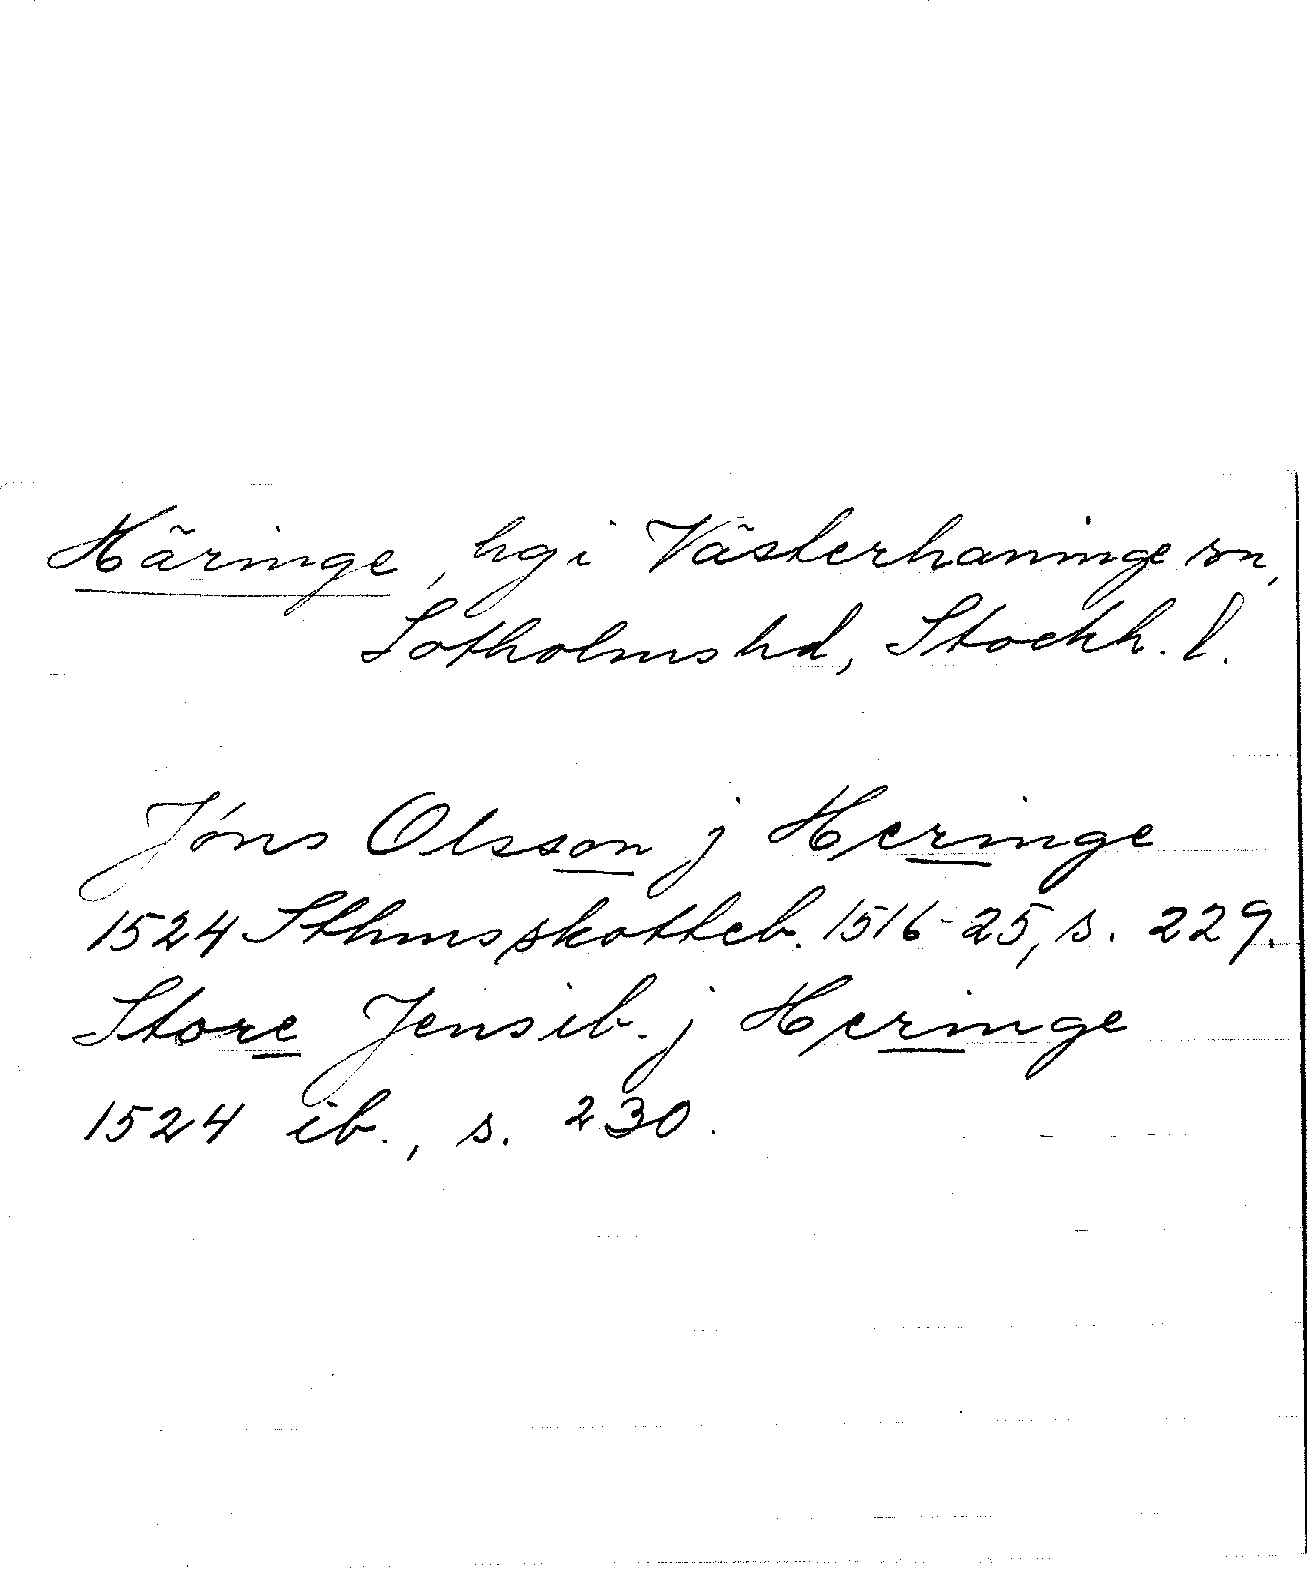 Häringe, hg i Västerhaninge sn,
Sotholms hd, Stockh. l.
Jóns Olsson j Heringe
1524 Sthms skotteb. 1516-25, s. 229.
Store Jens ib. j Heringe
1524 ib., s. 230.